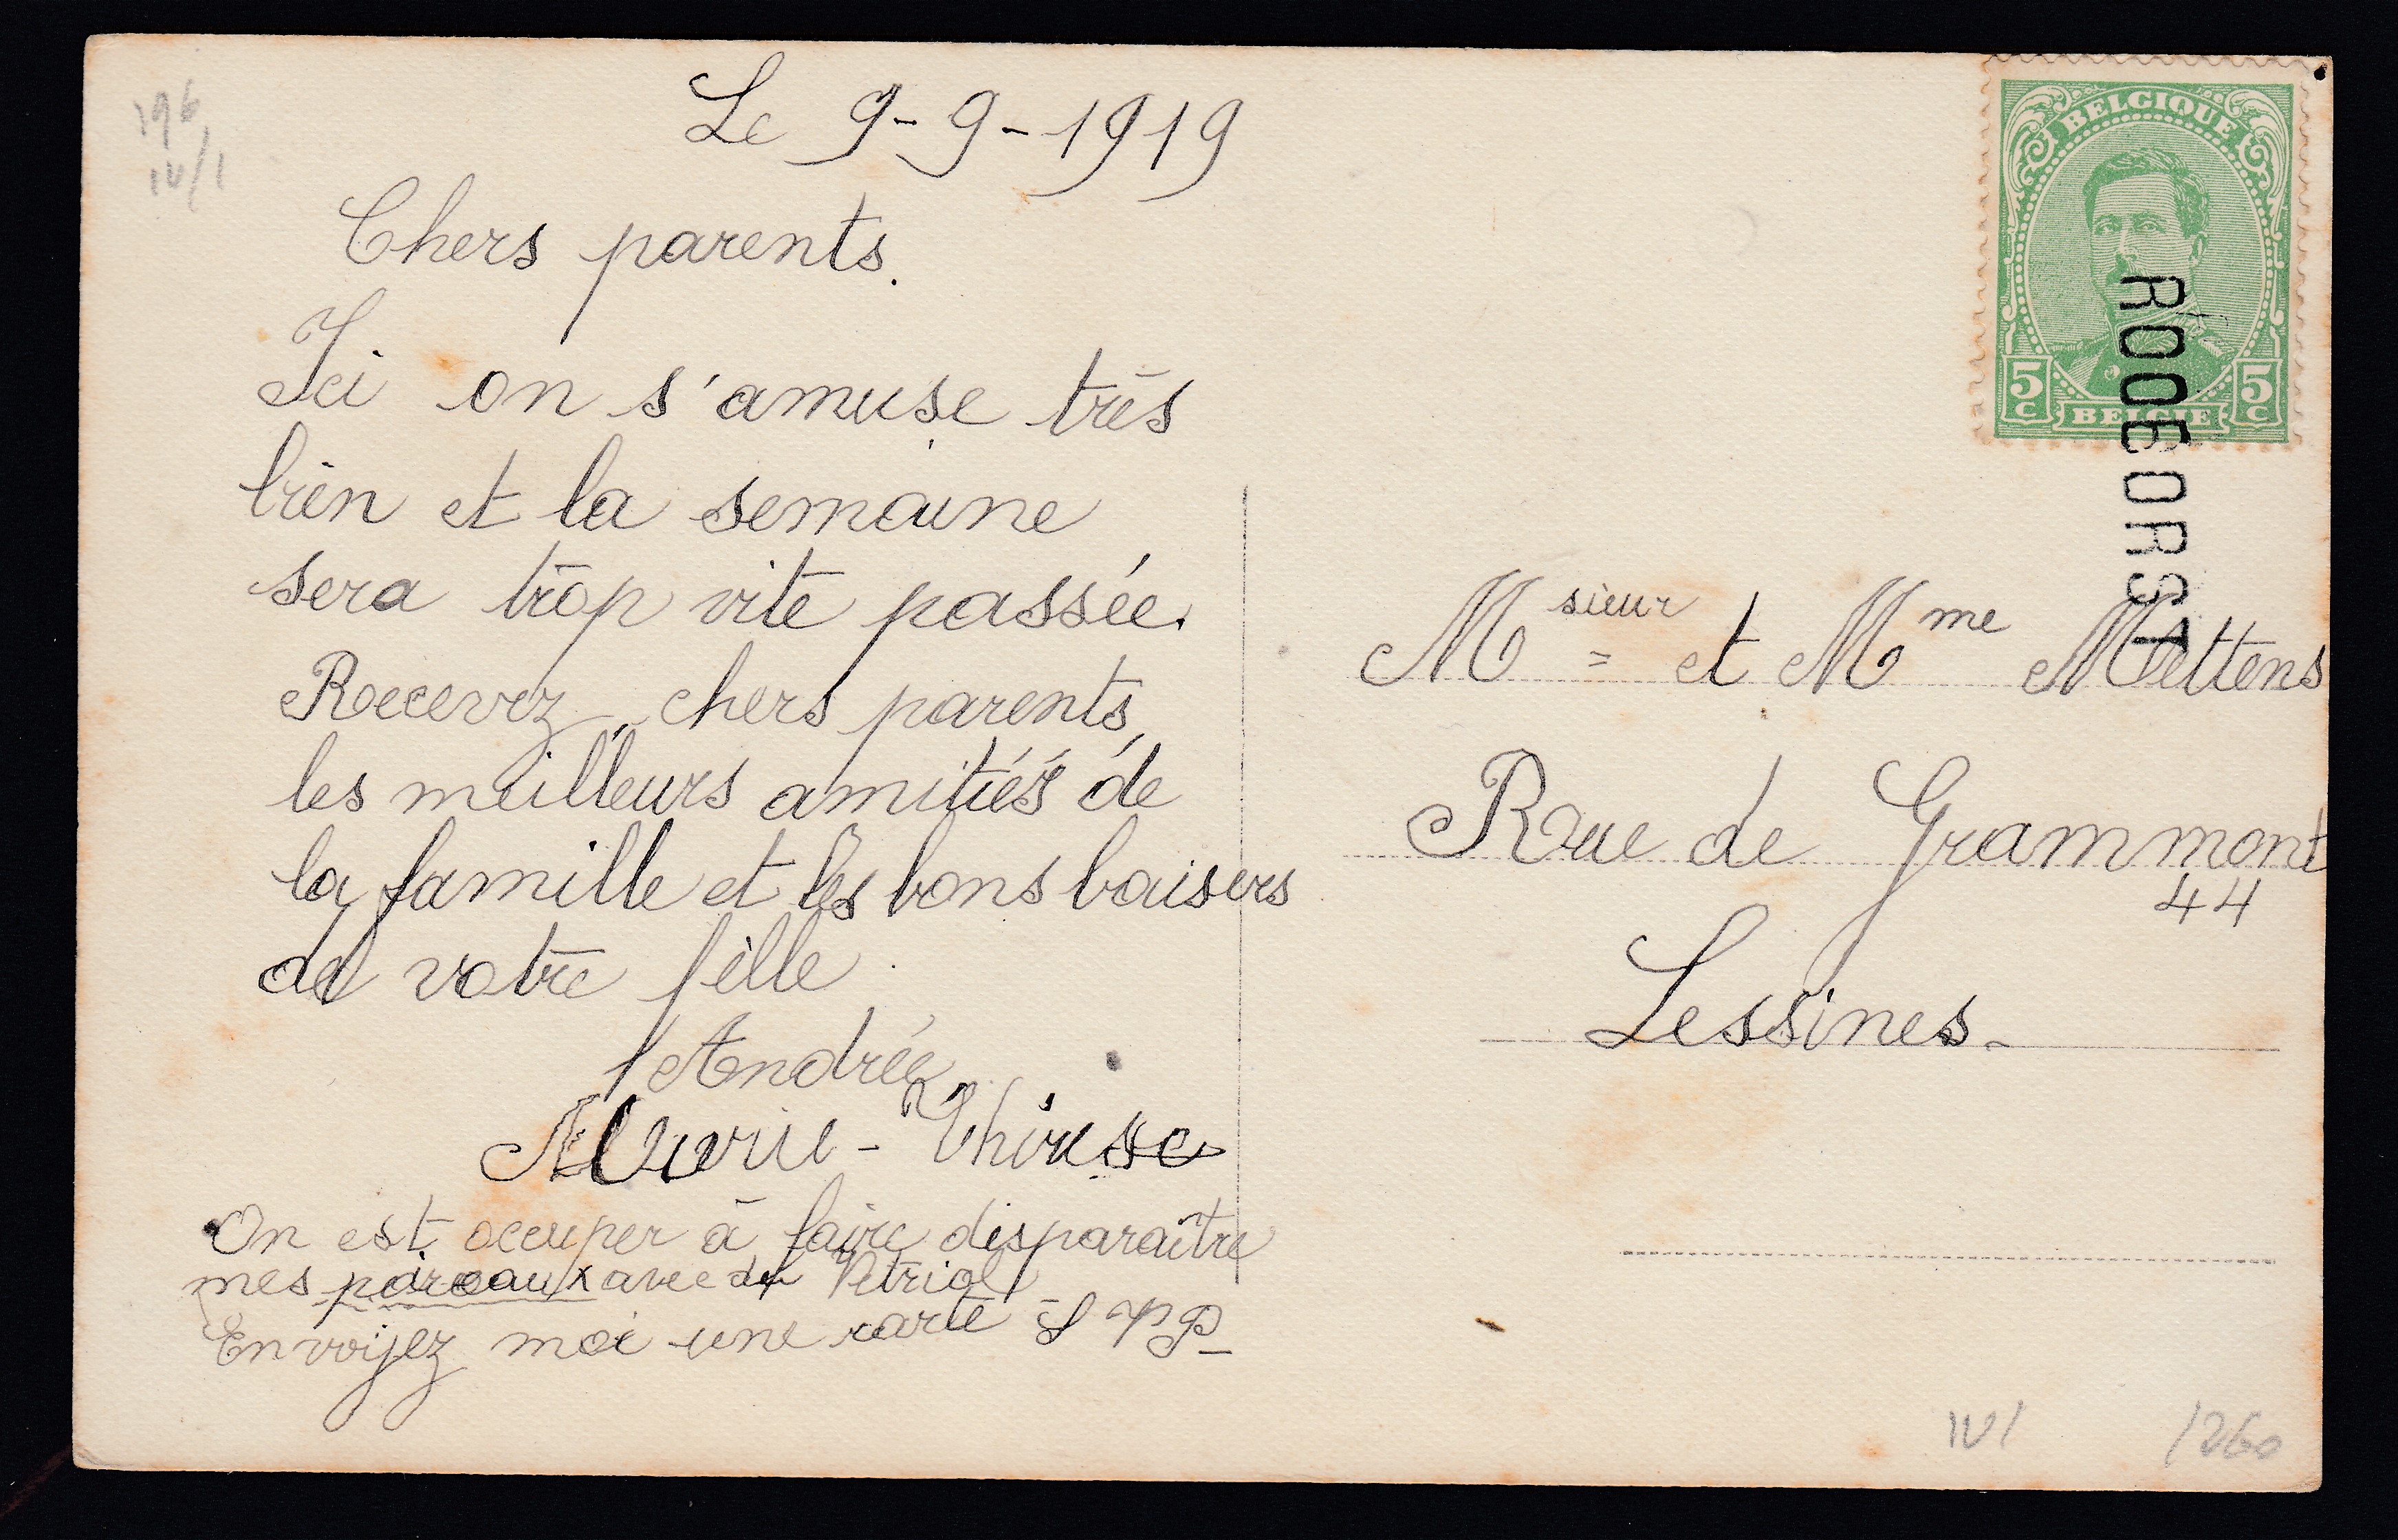 196
IV/1
Le 9-9-1919
Chers parents.
Ici on s'amuse très
bien et la semaine
sera trop vite passée.
Recevez, chers parents,
les meilleurs amitiés de
la famille et les bons baisers
de votre fille
Andrée
Marie-Thérèse
On est occuper à faire disparaître
mes poireaux avec du Vitriol
Envoijez moi une carte S V P
BELGIQUE
5 c
BELGIE
5 c
ROOBORST
Msieur et Mme Mettens
Rue de Grammont
44
Lessines
IV/
1260